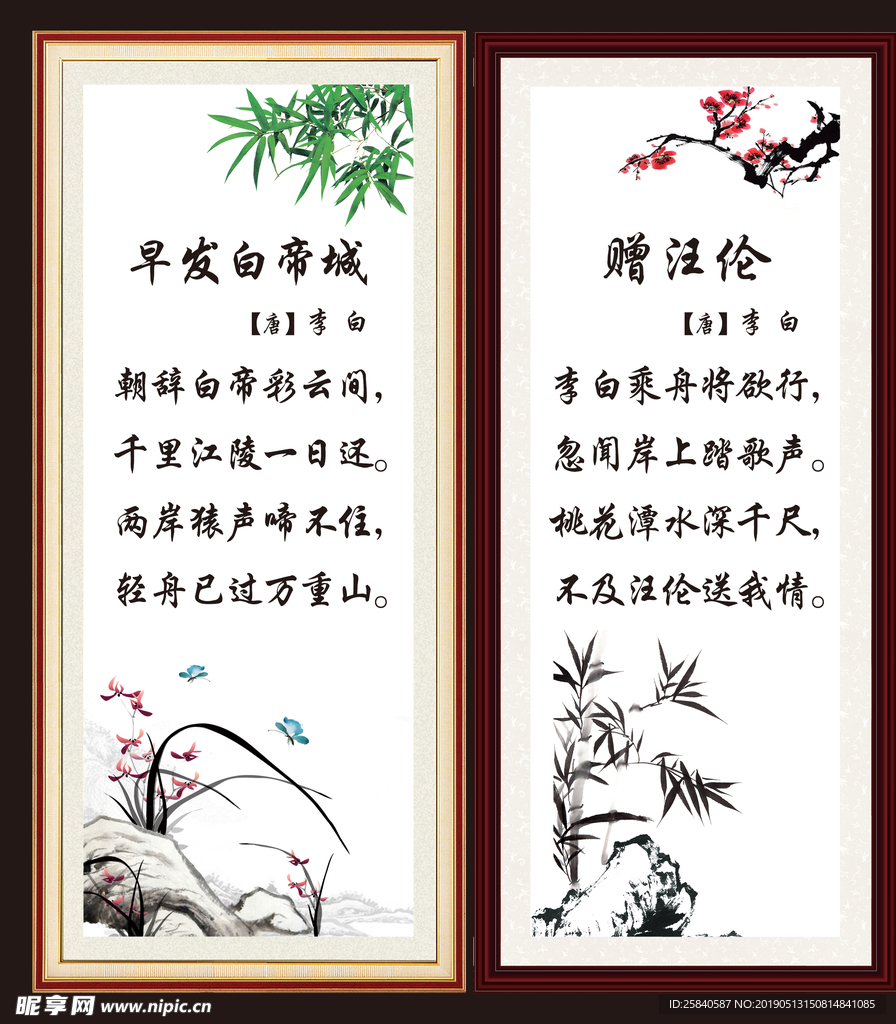 早发白帝城
【唐】李 白
朝辞白帝彩云间，
千里江陵一日还。
两岸猿声啼不住，
轻舟已过万重山。
赠汪伦
【唐】李 白
李白乘舟将欲行，
忽闻岸上踏歌声。
桃花潭水深千尺，
不及汪伦送我情。
昵享网 www.nipic.cn
ID:25840587 NO:20190513150814841085